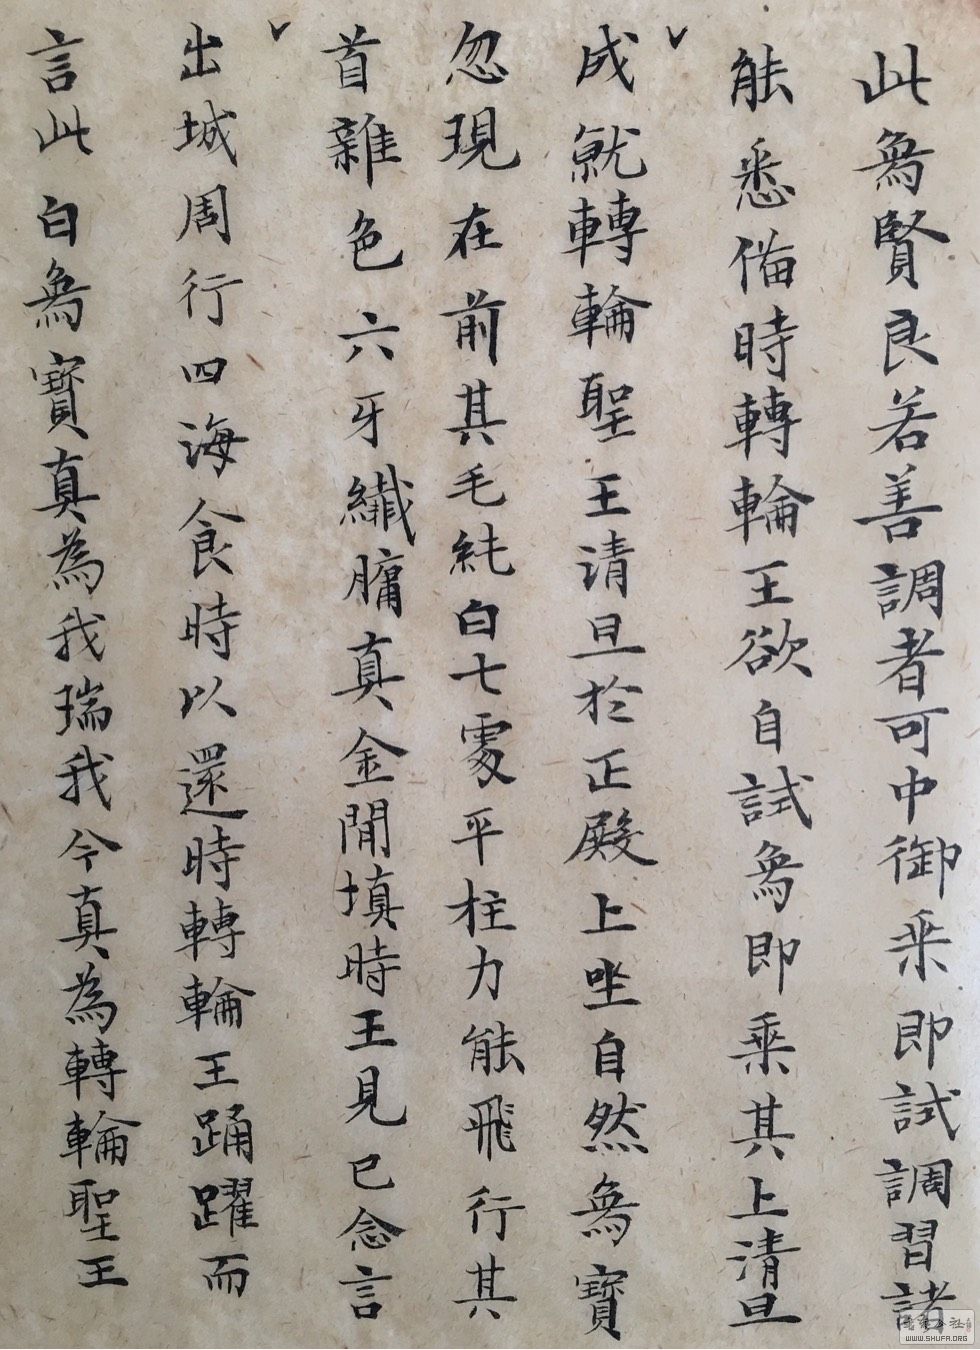 此象賢良若善調者可中御乘即試調習諸
能悉備時轉輪王欲自試象即乘其上清旦
成就轉輪聖王清旦於正殿上坐自然象寶
忽現在前其毛純白七處平柱力能飛行其
首雜色六牙纖𦟛真金閒填時王見已念言
出城周行四海食時以還時轉輪王踊躍而
言此白象寶真為我瑞我今真為轉輪聖王
WWW.SHUFA.ORG